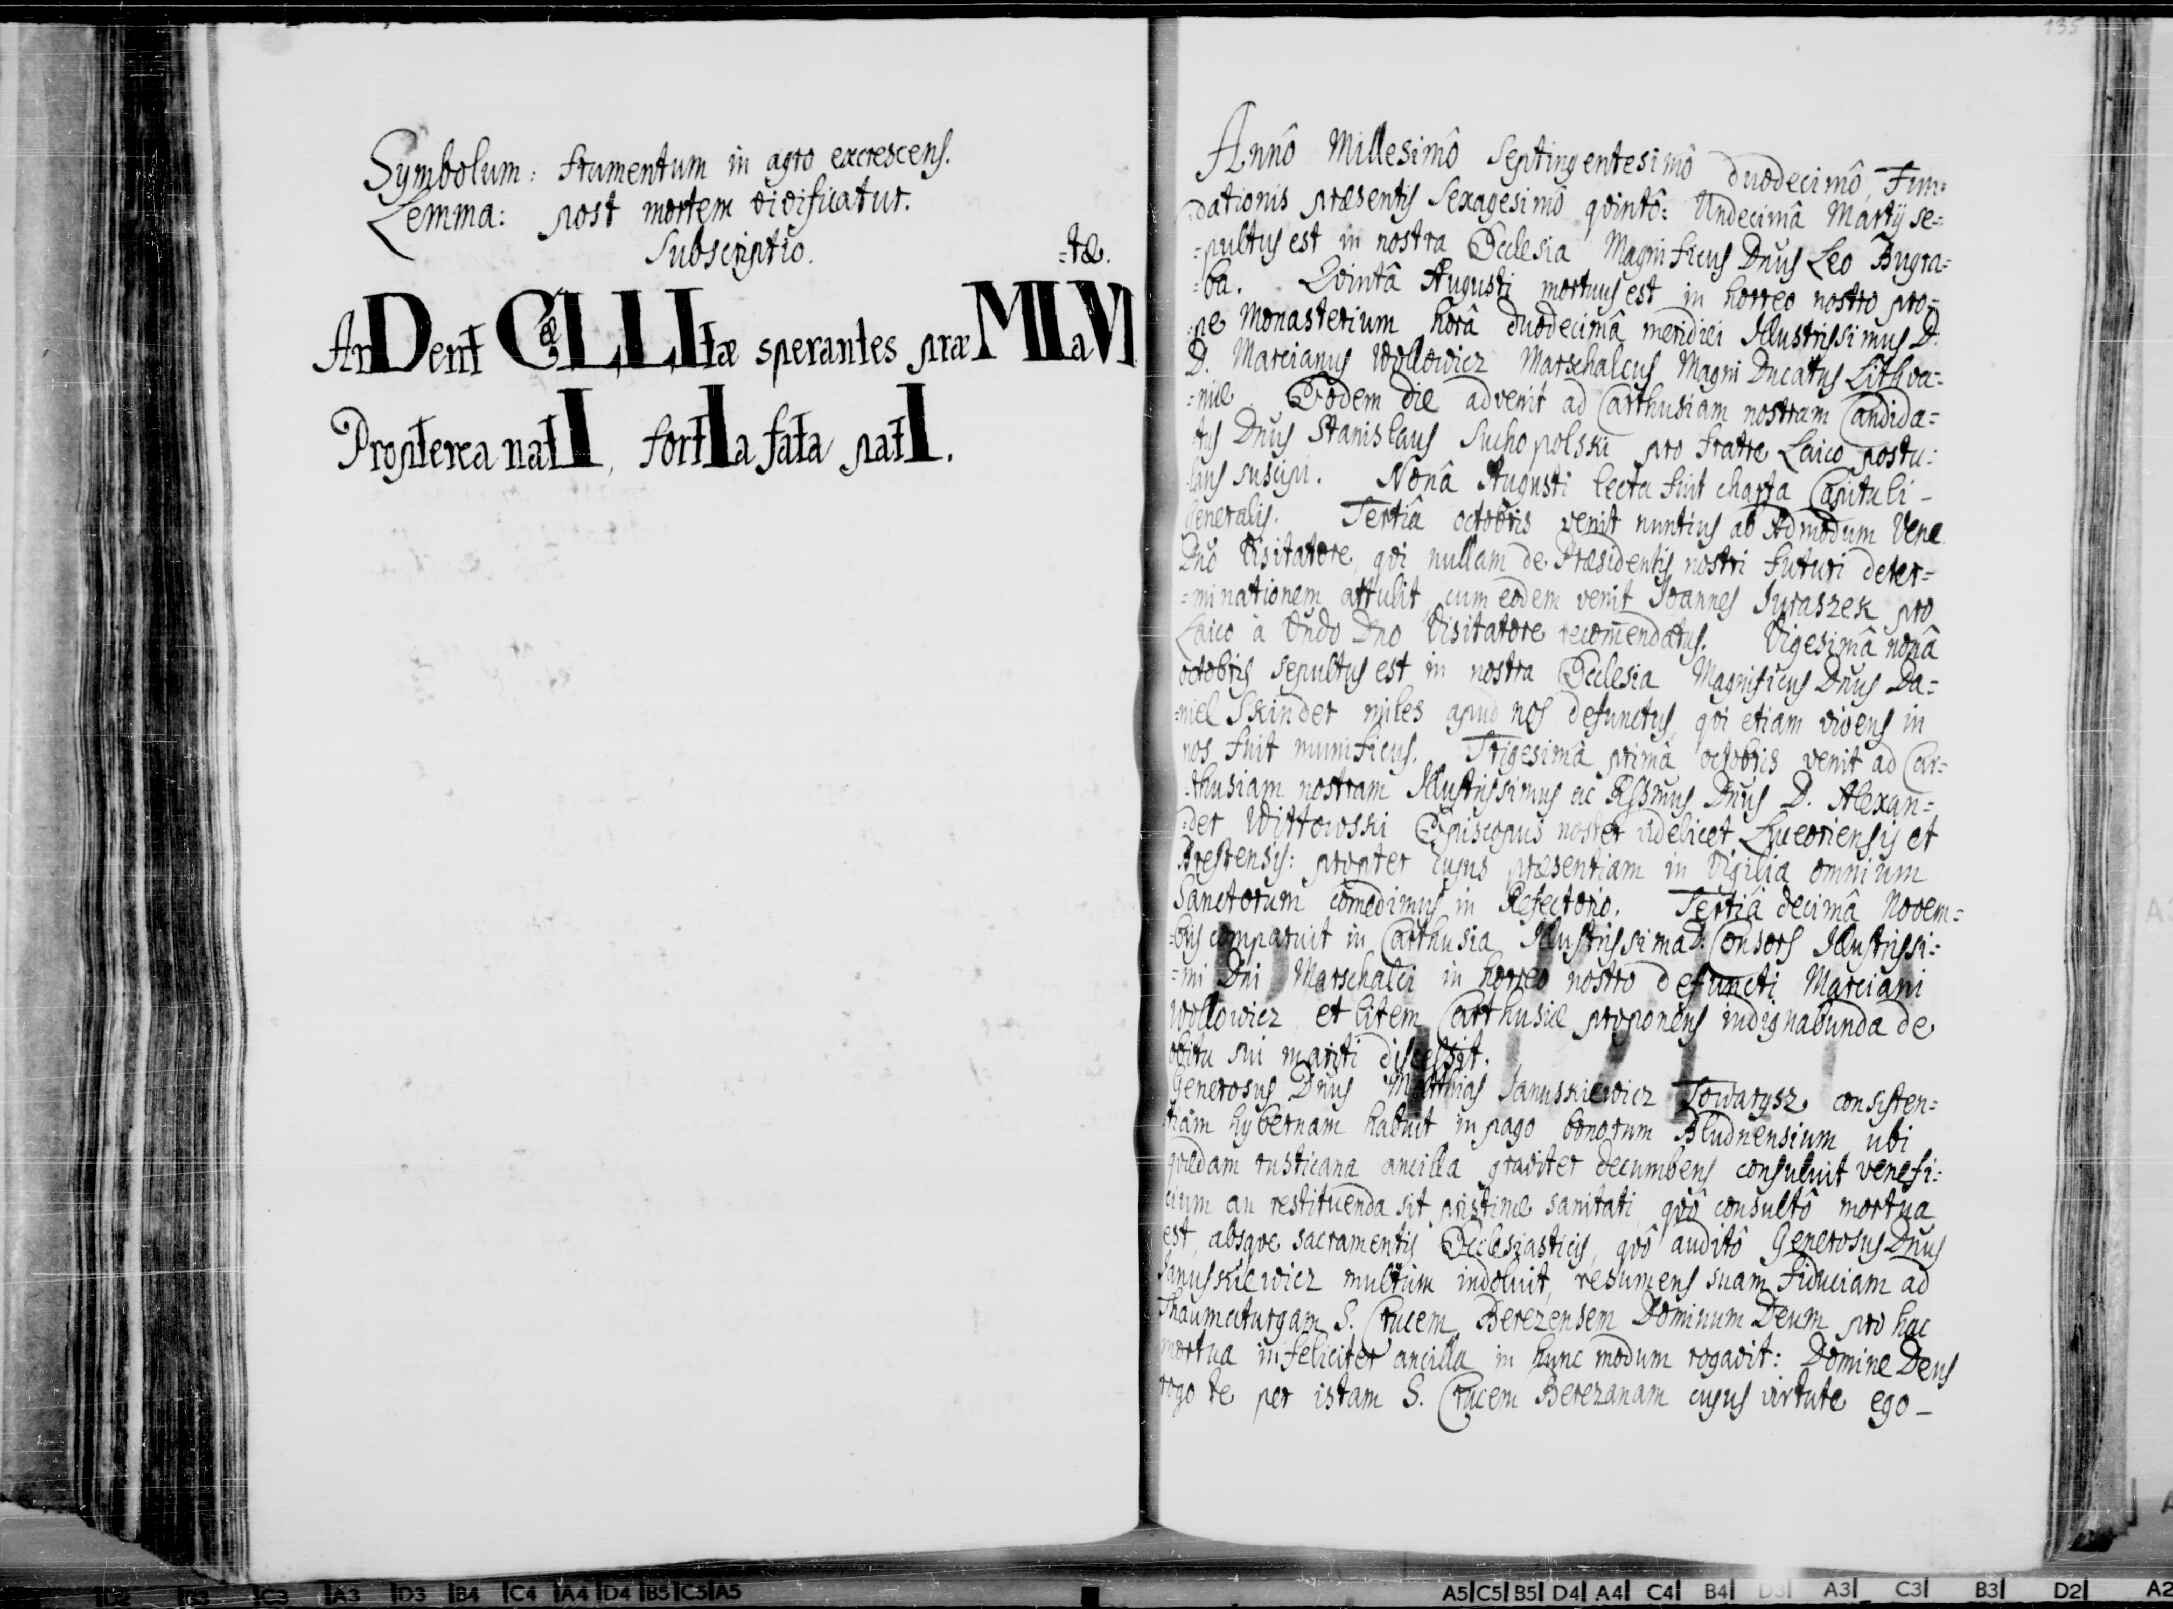 Symbolum: frumentum in agro excrescens.
Lemma: post mortem vivificatur.
Subscriptio.
=tæ.
ArDent CæLLItæ sperantes præMIIaVI
Propterea natI, fortIa fata patI.
135
Annô Millesimô Septingentesimô duodecimô, Fun=
dationis præsentis Sexagesimô qvintô: Undecimâ Martij se=
=pultus est in nostra Ecclesia Magnificus Dnus Leo Bugra=
=ba. Qvintâ Augusti mortuus est in horreo nostro pro=
=pe Monasterium horâ duodecimâ meridiei Illustrissimus D.
D. Marcianus Wollowicz Marschalcus Magni Ducatus Lithva=
=niæ. Eodem die advenit ad Carthusiam nostram Candida=
tus Dnus Stanislaus Suchopolski pro fratre Laico postu=
lans suscipi. Nonâ Augusti lecta fuit charta Capituli -
Generalis. Tertiâ octobris venit nuntius ab Admodum Vene
Dno Visitatore, qvi nullam de Præsidentis nostri futuri deter=
=minationem attulit, cum eodem venit Joannes Juraszek pro
Laico à Vndo Dno Visitatore recomendatus. Vigesimâ nonâ
octobris sepultus est in nostra Ecclesia Magnificus Dnus Da=
=niel Skinder miles apud nos defunctus, qvi etiam vivens in
nos fuit munificus. Trigesimâ primâ octobris venit ad Car=
=thusiam nostram Illustrissimus ac Rssmus Dnus D. Alexan=
=der Wittowski Episcopus noster videlicet Luceoriensis et
Brestensis: propter cujus præsentiam in Vigilia omnium
Sanctorum comedimus in Refectorio. Tertiâ decimâ Novem=
=bris comparuit in Carthusia Illustrissima D. Consors Illustrissi=
=mi Dni Marschalci in horreo nostro defuncti Marciani
Wollowicz et litem Carthusiæ proponens indignabunda de
obitu sui mariti discessit.
Generosus Dnus Matthias Januskiewicz Towarysz consisten=
tiam hybernam habuit in pago bonorum Bludnensium ubi
qvædam rusticana ancilla graviter decumbens consuluit venefi=
cium an restituenda sit pristinæ sanitati, qvô consultô mortua
est absqve sacramentis Ecclesiasticis, qvô auditô Generosus Dnus
Januskiewicz multum indoluit, resumens suam fiduciam ad
Thaumaturgam S. Crucem Berezensem Dominum Deum pro hac
mortua infeliciter ancilla in hunc modum rogavit: Domine Deus
rogo te per istam S. Crucem Berezanam cujus virtute ego -